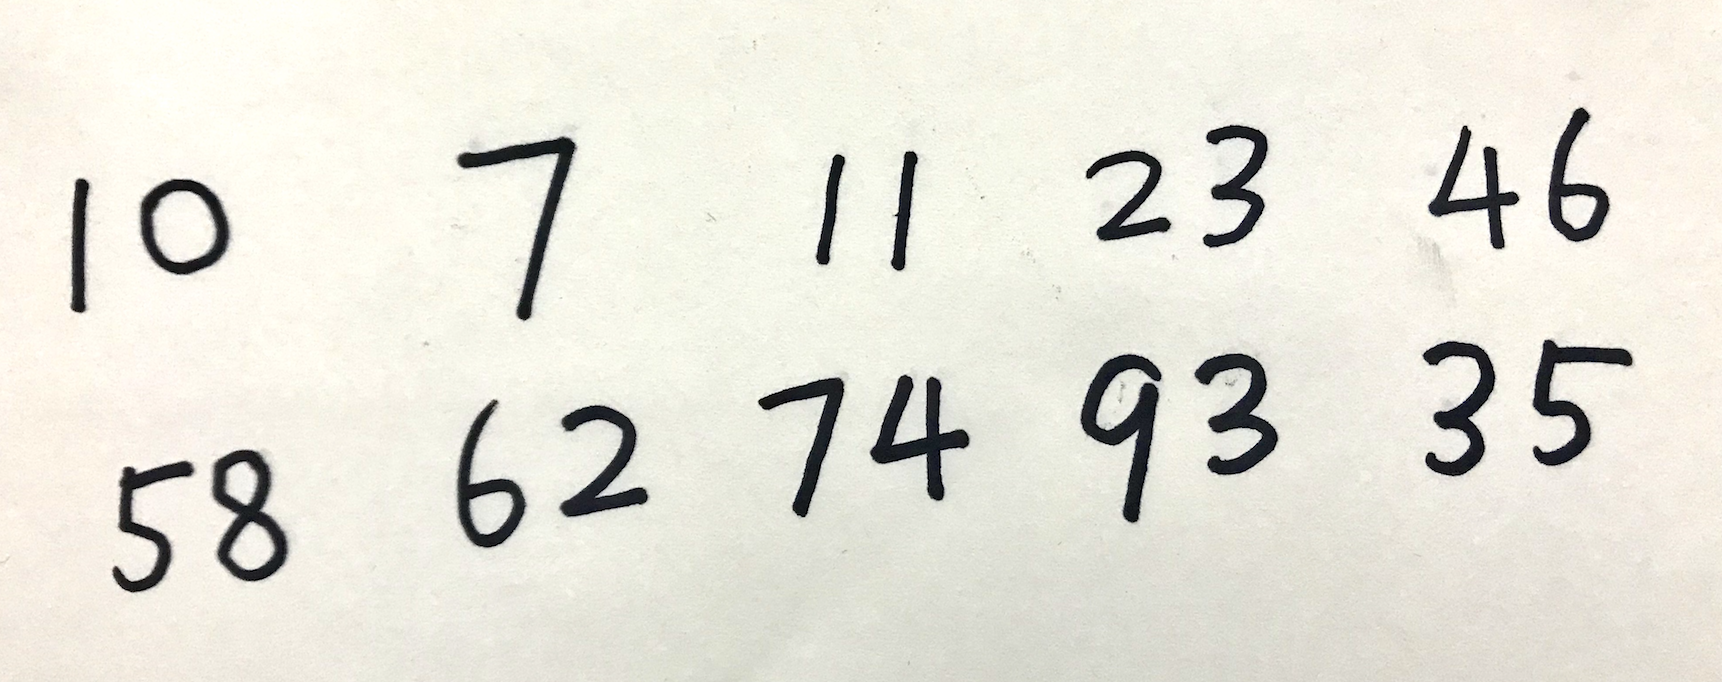 10 7 11 23 46
58 62 74 93 35